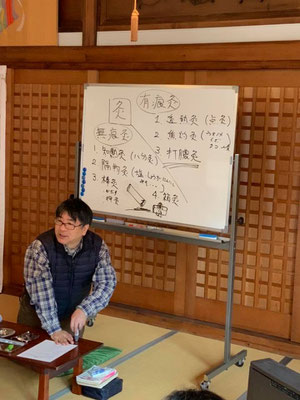 灸
有痕灸
1. 透熱灸 (点灸)
2. 焦灼灸 (ウオノメ
3. 打膿灸
無痕灸
1. 知熱灸 (八分灸)
2. 隔物灸 (塩
3. 棒灸
4. 箱灸